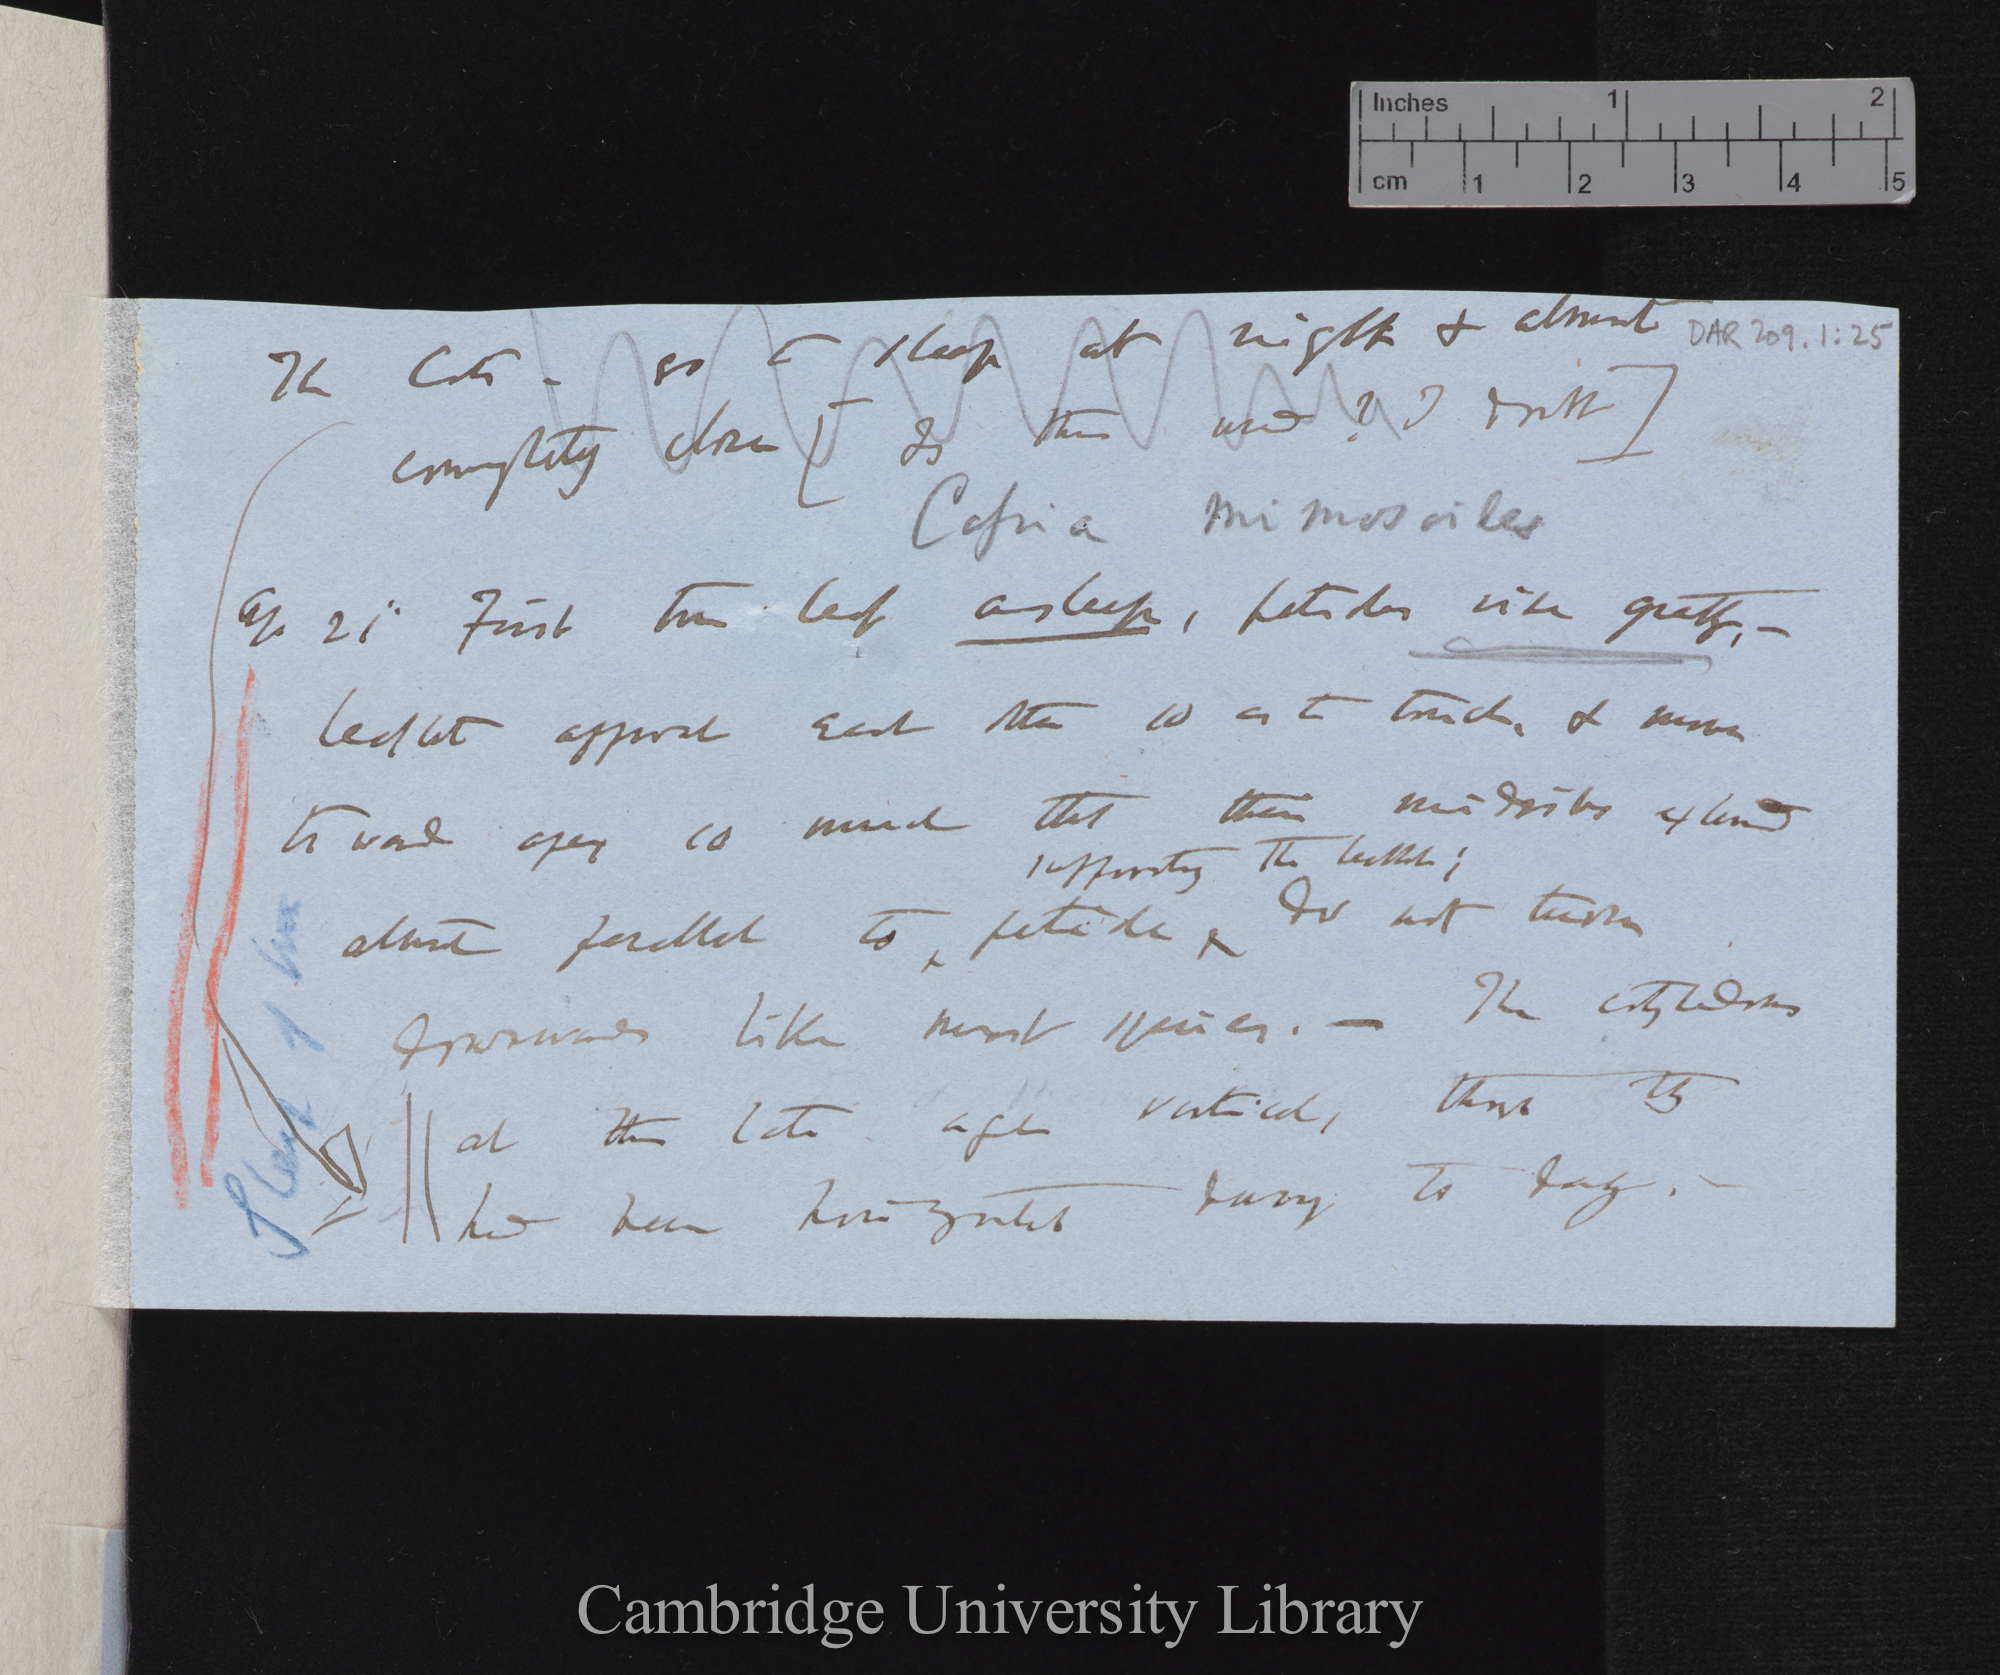 Inches 1 2
cm 1 2 3 4 5
DAR 209.1:25
The Cots - go to sleep at night & almost
completely close [Is this used? I doubt]
Cassia mimosoides
Ap 21. First true leaf asleep, petioles rise greatly, —
leaflet opposed each other so as to touch, & move
toward apex so much that their midribs extend
supporting the leaflets;
almost parallel to petiole, do not turn
downwards like most species. — The cotyledons
at this late age vertical, though they
had been horizontal during to day. —
Sleep of
Cambridge University Library